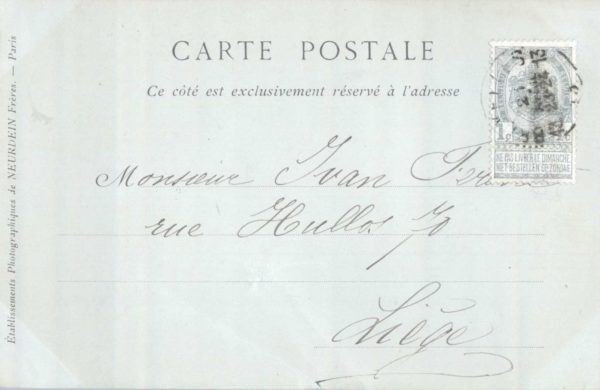 CARTE POSTALE
Ce côté est exclusivement réservé à l'adresse
Monsieur Ivan
rue Hullos 70
Liège
NE PAS LIVRER LE DIMANCHE
NIET BESTELLEN OP ZONDAG
Etablissements Photographiques de NEURDEIN Frères. — Paris